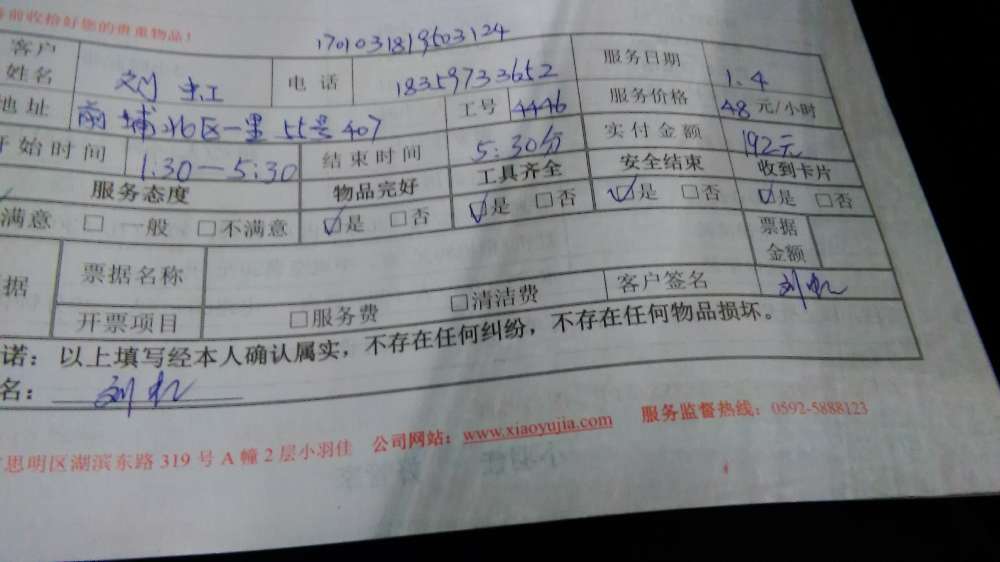 前收拾好您的贵重物品!
1701031819503124
客户姓名 刘虹 电话 18359733652 服务日期 1.4
地址 前埔北区一里55号407 工号 4446 服务价格 48元/小时
开始时间 1:30—5:30 结束时间 5:30分 实付金额 192元
服务态度 物品完好 工具齐全 安全结束 收到卡片
满意 □一般 □不满意 ☑是 □否 ☑是 □否 ☑是 □否 ☑是 □否
据 票据名称 票据金额
开票项目 □服务费 □清洁费 客户签名 刘虹
诺:以上填写经本人确认属实,不存在任何纠纷,不存在任何物品损坏。
名: 刘虹
思明区湖滨东路 319 号 A 幢 2 层小羽佳 公司网站:www.xiaoyujia.com 服务监督热线:0592-5888123